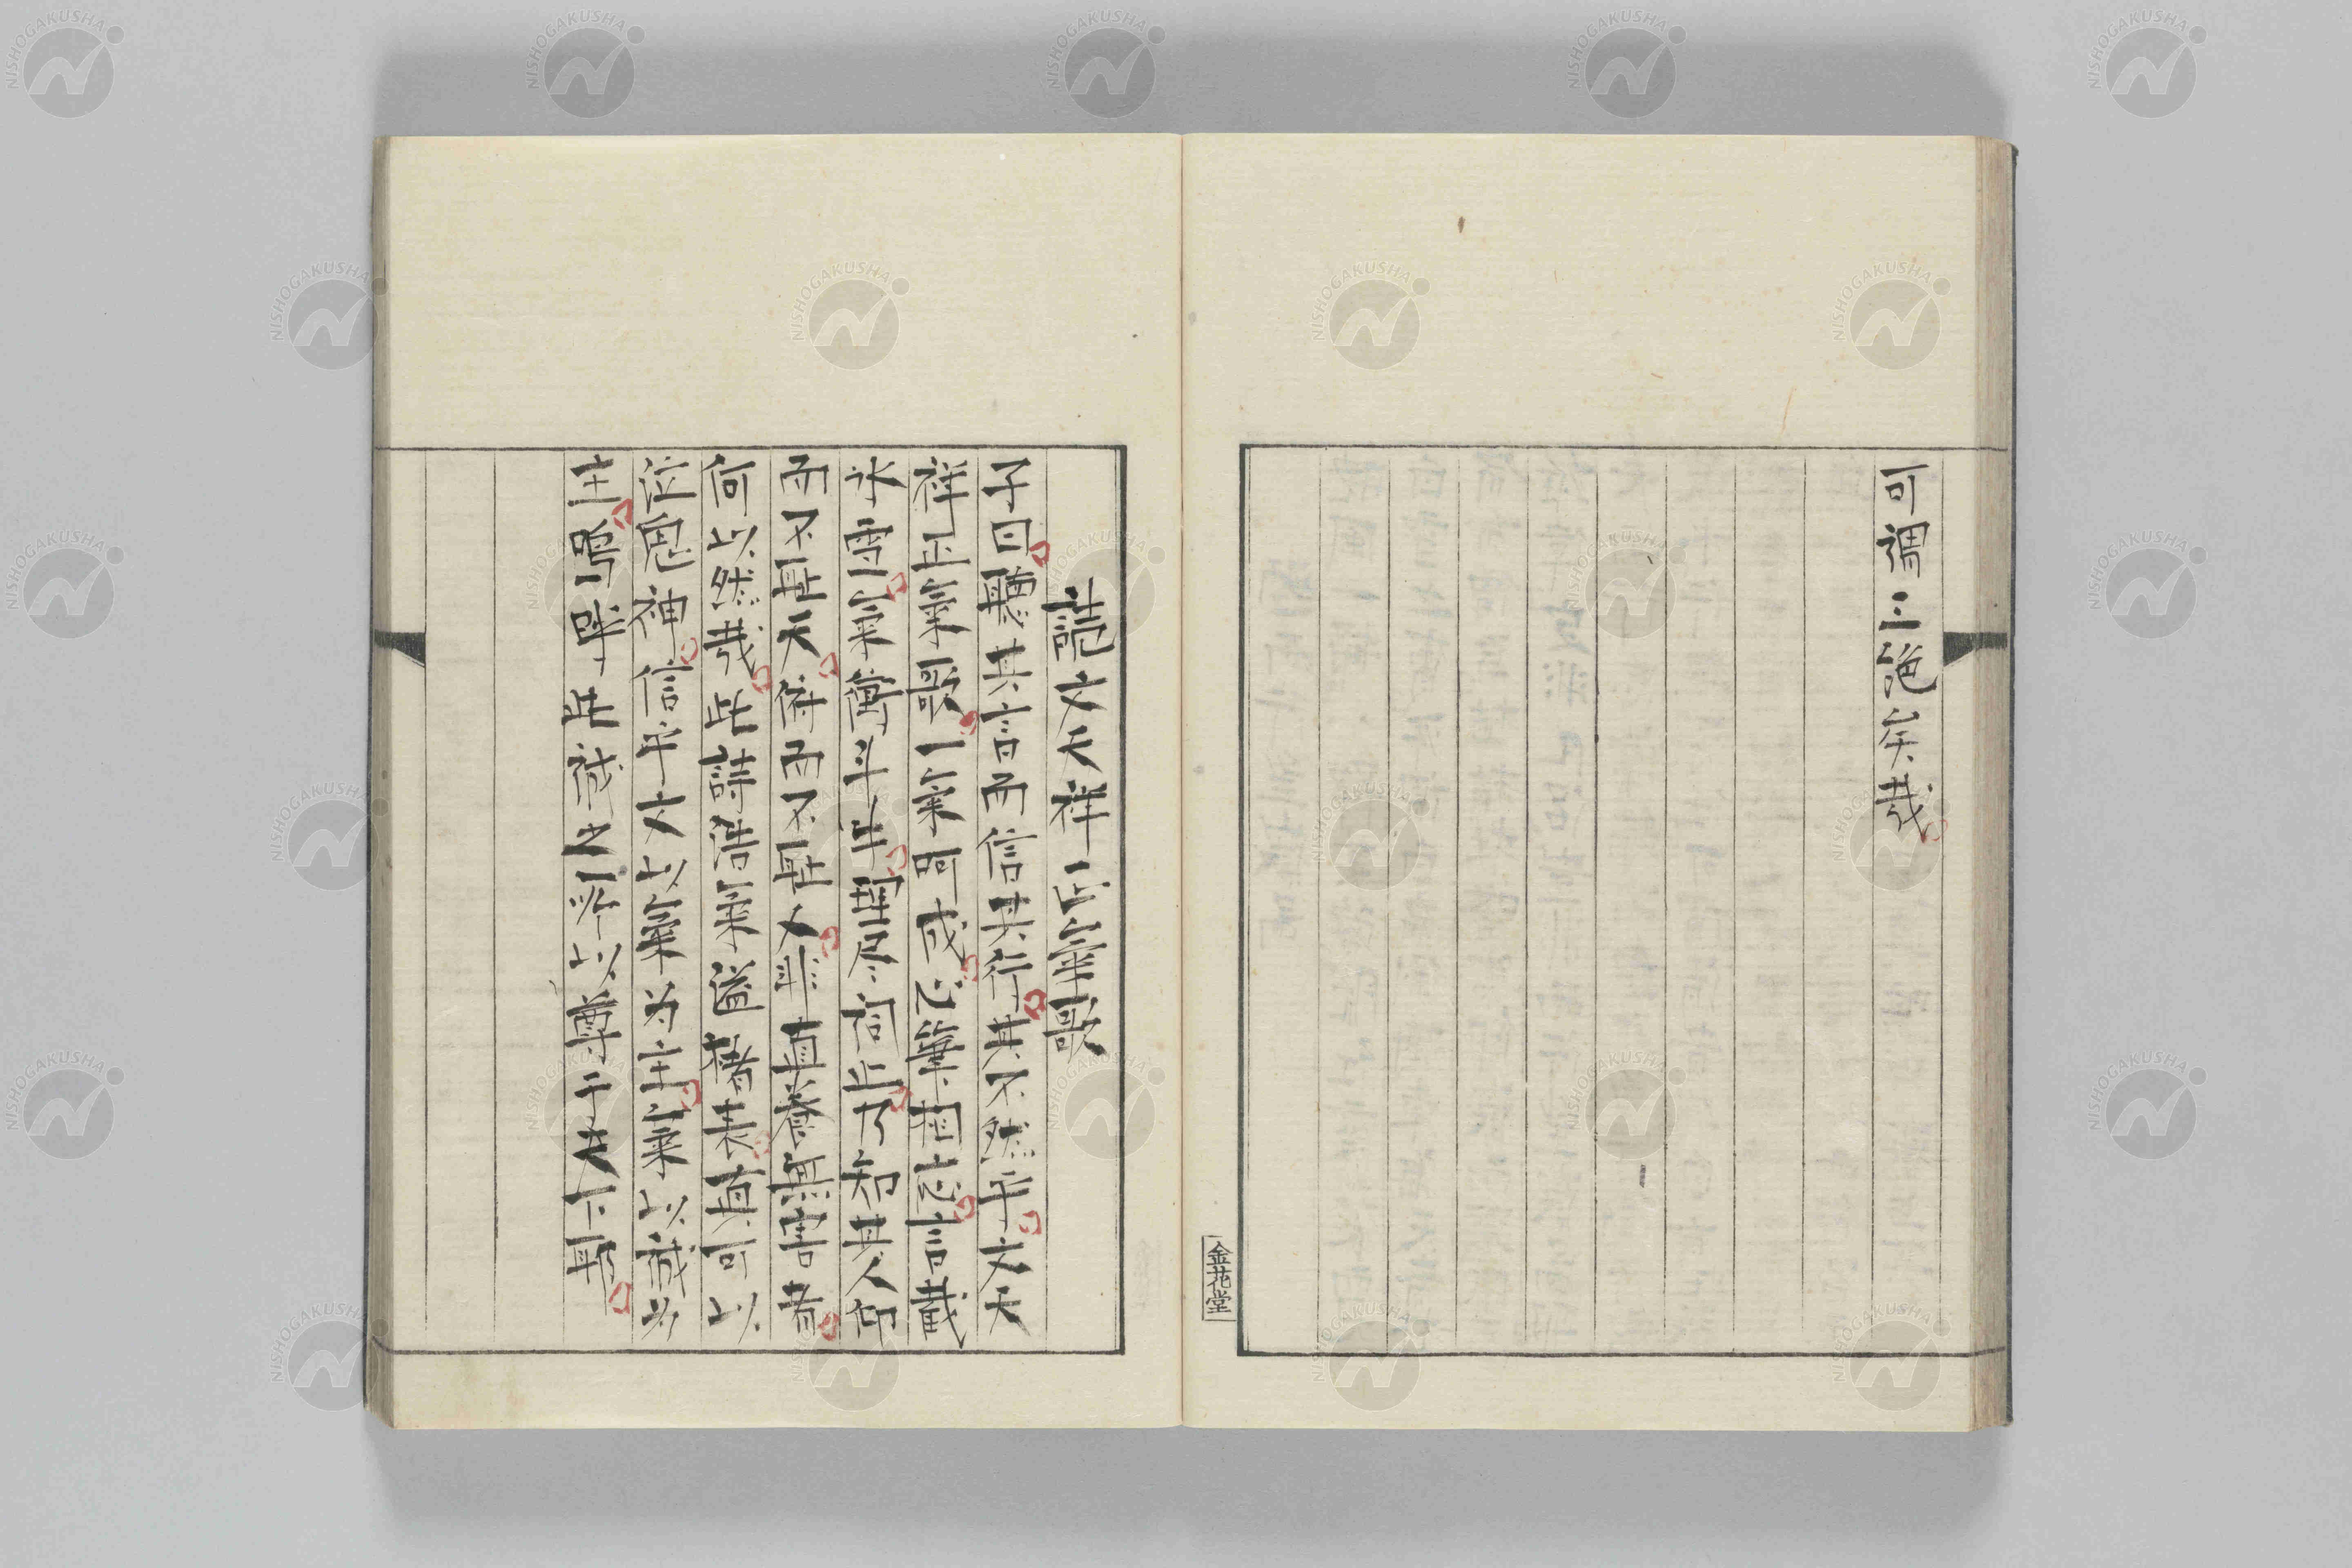 可謂三絶矣哉
金花堂
読文天祥正氣歌
子曰聽其言而信其行其不然乎文天
祥正氣歌一氣呵成心筆相忘言截
氷雪氣衝斗牛理尽詞止乃知其人仰
而不耻天俯而不耻人非直養無害者
何以然哉此詩浩氣溢楮表直可以
泣鬼神信乎文以氣为主氣以誠为
主嗚呼此誠之所以尊于天下耶